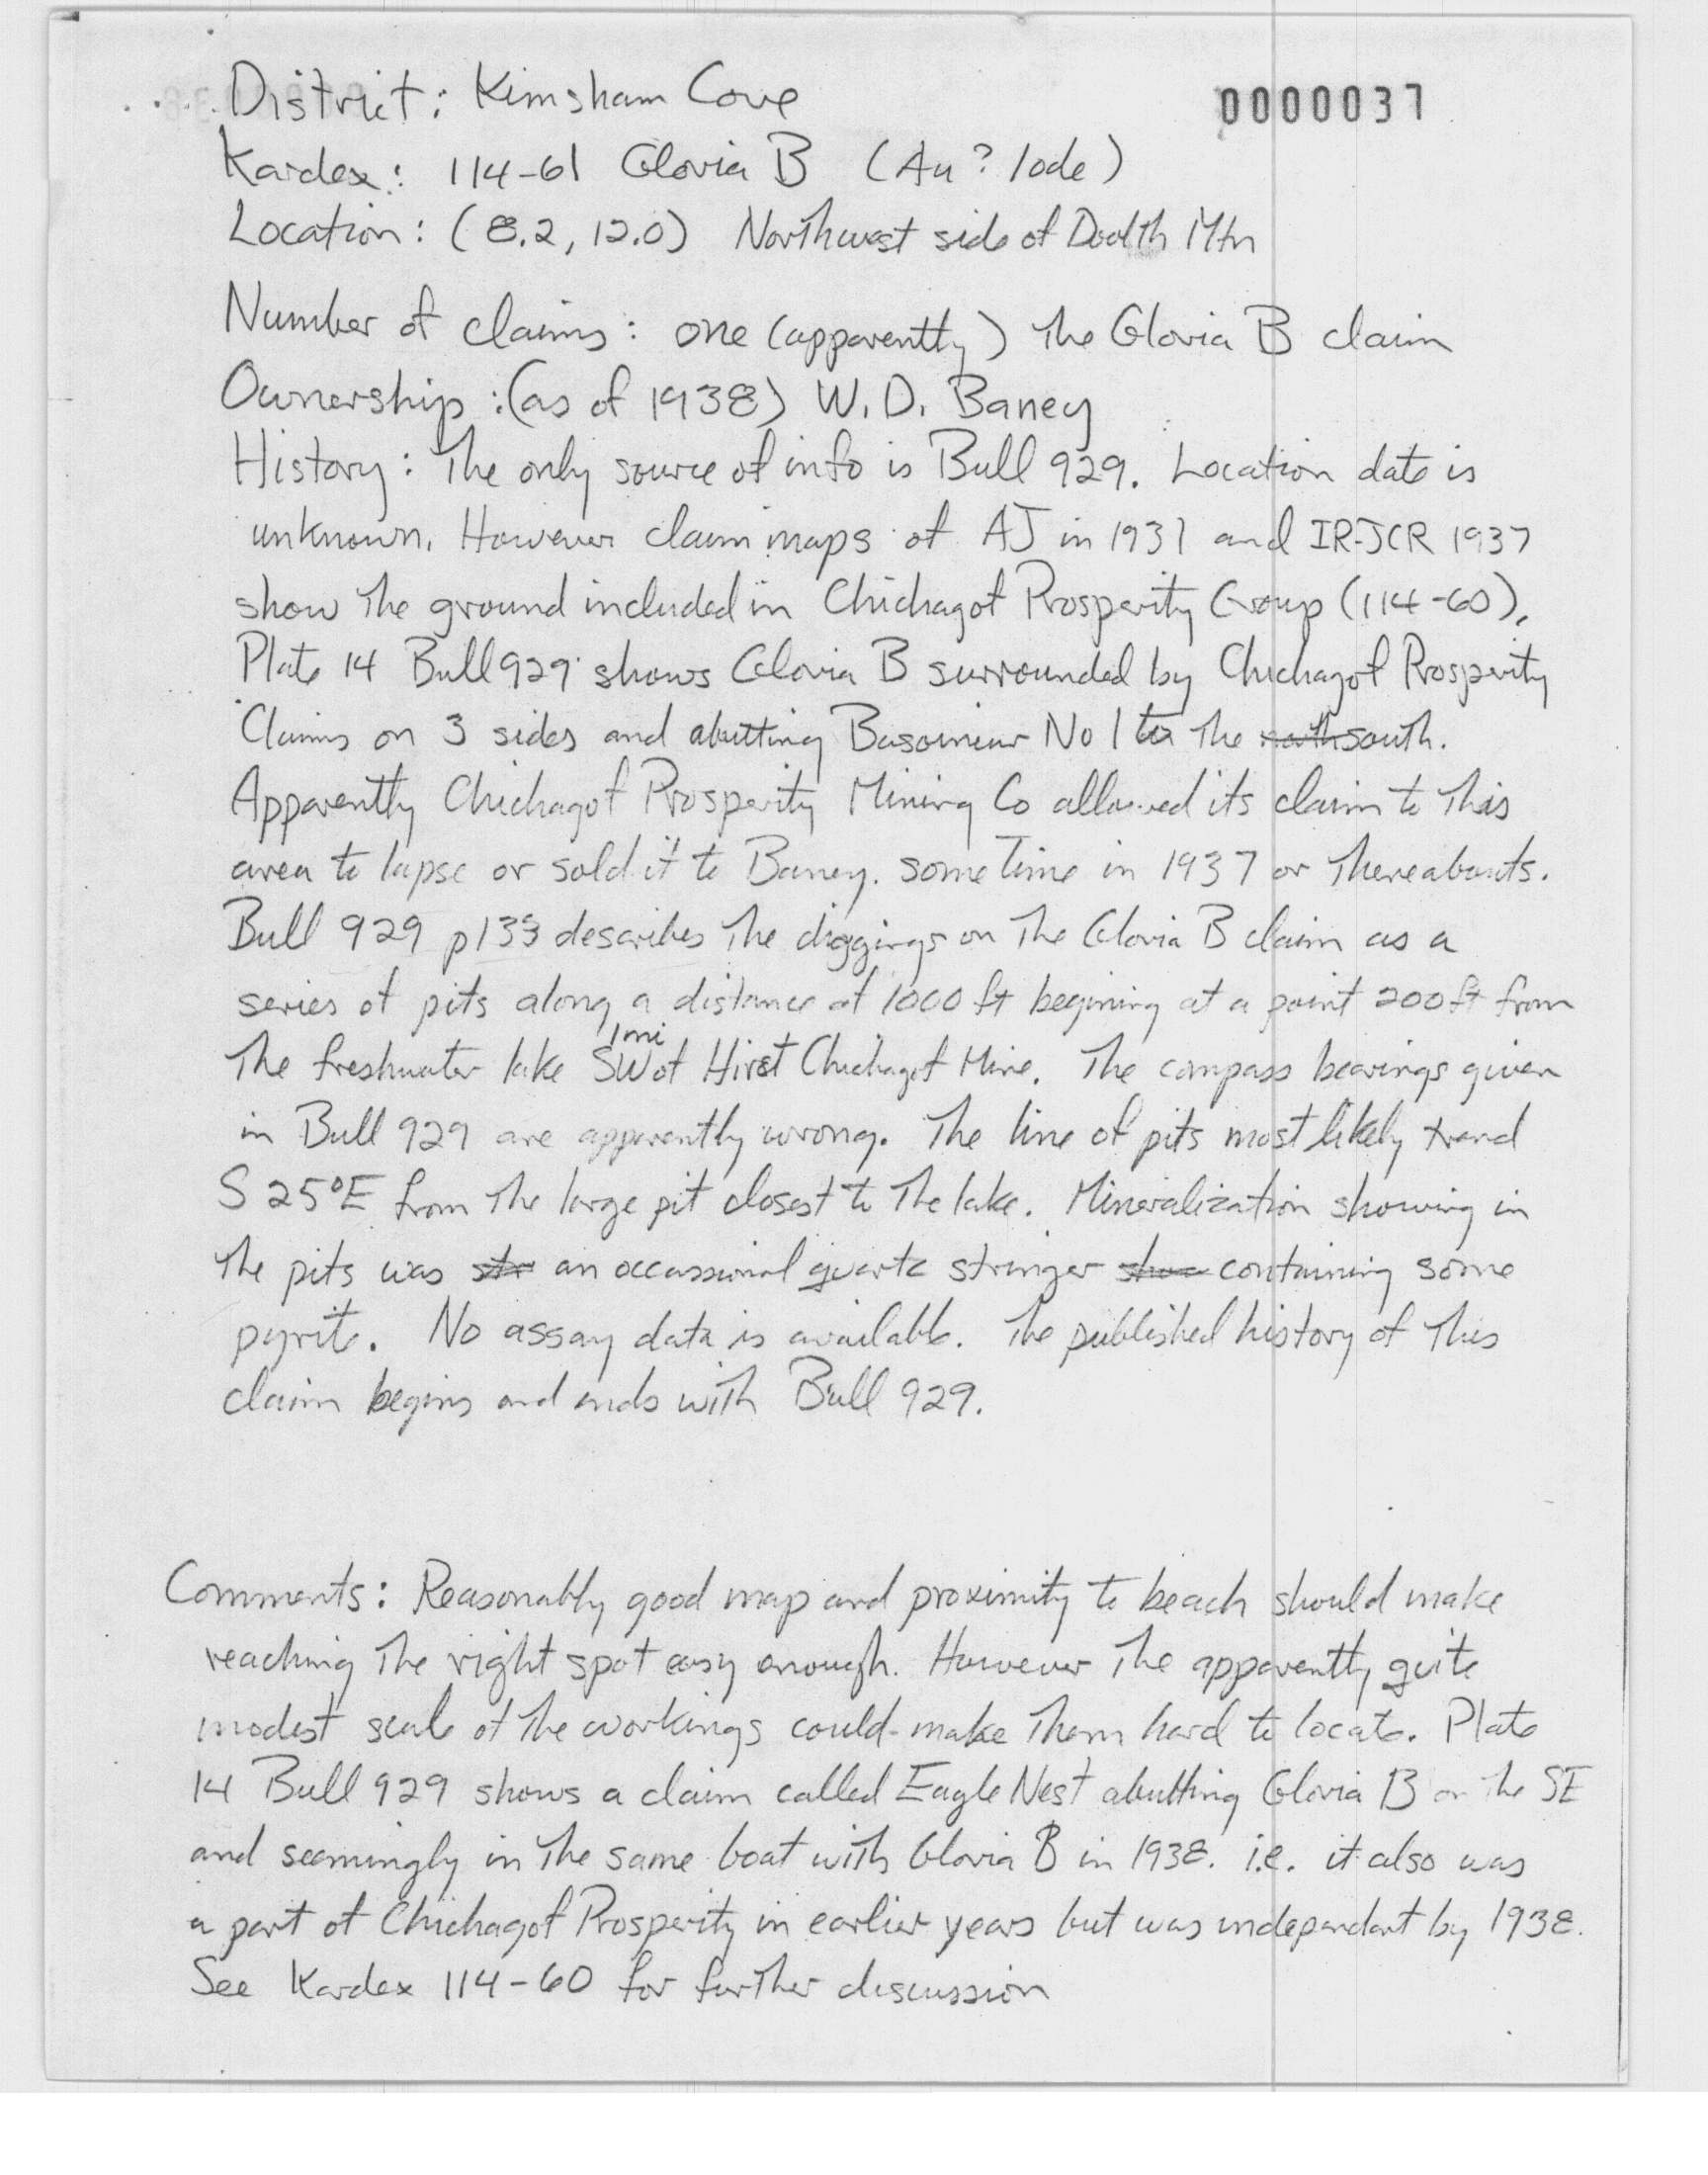 District: Kimsham Cove
0000037
Kardex: 114-61 Gloria B (Au? lode)
Location: (8.2, 12.0) Northwest side of Doolth Mtn
Number of claims: one (apparently) The Gloria B claim
Ownership: (as of 1938) W.D. Baney
History: The only source of info is Bull 929. Location date is
unknown. However claim maps of AJ in 1931 and IR-JCR 1937
show The ground included in Chichagof Prosperity Group (114-60).
Plate 14 Bull 929 shows Gloria B surrounded by Chichagof Prosperity
Claims on 3 sides and abutting No 1 to The north south.
Apparently Chichagof Prosperity Mining Co allowed its claim to This
area to lapse or sold it to Baney. sometime in 1937 or Thereabouts.
Bull 929 describes The diggings on The Gloria B claim as a
series of pits along a distance of 1000 ft begining at a point 200 ft from
1mi
The freshwater lake SW of Hirst Chichagof Mine. The compass bearings given
in Bull 929 are apparently wrong. The line of pits most likely trend
S 25°E from The large pit closest to The lake. Mineralization showing in
The pits was an occassional quartz stringer containing some
pyrite. No assay data is available. The published history of This
claim begins and ends with Bull 929.
Comments: Reasonably good map and proximity to beach should make
reaching The right spot easy enough. However The apparently quite
modest scale of The workings could make Them hard to locate. Plate
14 Bull 929 shows a claim called Eagle Nest abutting Gloria B on The SE
and seemingly in The same boat with Gloria B in 1938. i.e. it also was
a part of Chichagof Prosperity in earlier years but was independant by 1938.
See Kardex 114-60 for further discussion